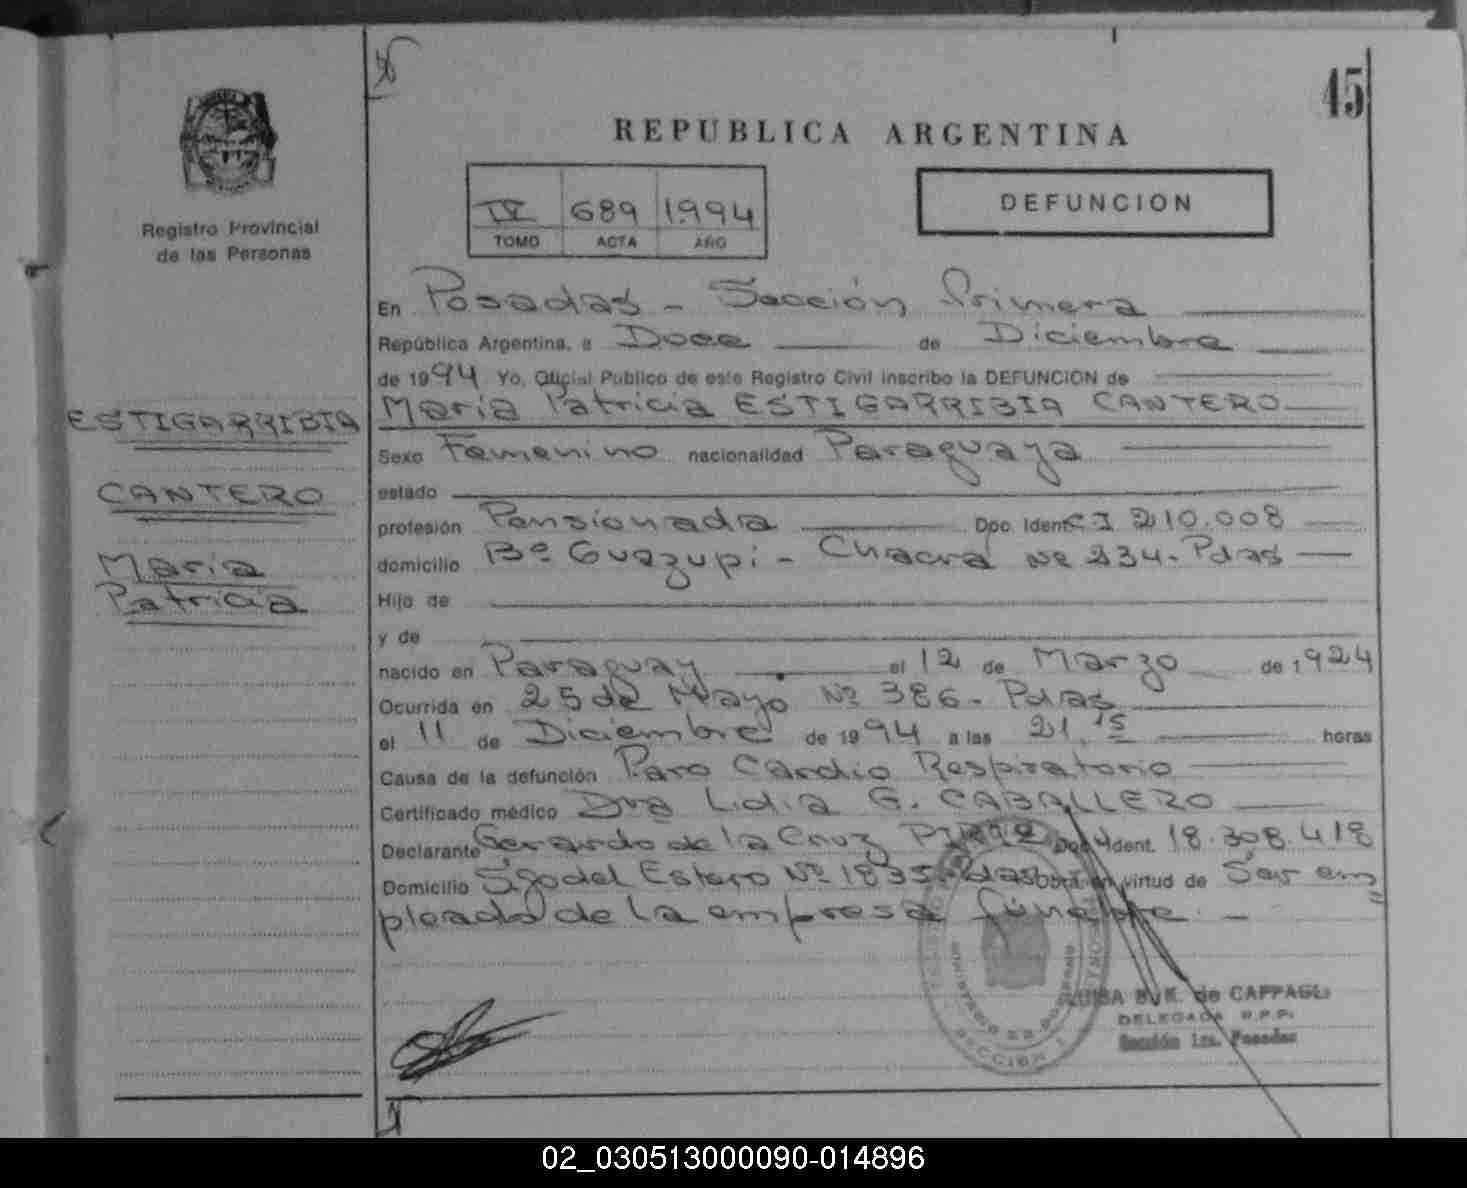 45
REPUBLICA ARGENTINA
Registro Provincial
de las Personas
IV 689 1.994
TOMO ACTA AÑO
DEFUNCION
En Posadas - Sección Primera
República Argentina, a Doce de Diciembre
de 1994 Yo, Oficial Público de este Registro Civil inscribo la DEFUNCION de
María Patricia ESTIGARRIBIA CANTERO
ESTIGARRIBIA
CANTERO
María
Patricia
Sexo Femenino nacionalidad Paraguaya
estado
profesión Pensionada Doc. Ident. CI 210.008
domicilio Bº Guazupi - Chacra Nº 234 - Pdas
Hijo de
y de
nacido en Paraguay el 12 de Marzo de 1924
Ocurrida en 25 de Mayo Nº 386 - Pdas
el 11 de Diciembre de 1994 a las 21,15 horas
Causa de la defunción Paro Cardio Respiratorio
Certificado médico Dra Lidia G. CABALLERO
Declarante Gerardo de la Cruz Doc. Ident. 18.308.418
Domicilio Sgo del Estero Nº 1835 - Pdas Obra en virtud de Ser em
pleado de la empresa fúnebre. -
de CAPPAGLI
DELEGADA R.P.P.
Sección 1ra. Posadas
SECCION 1
02_030513000090-014896